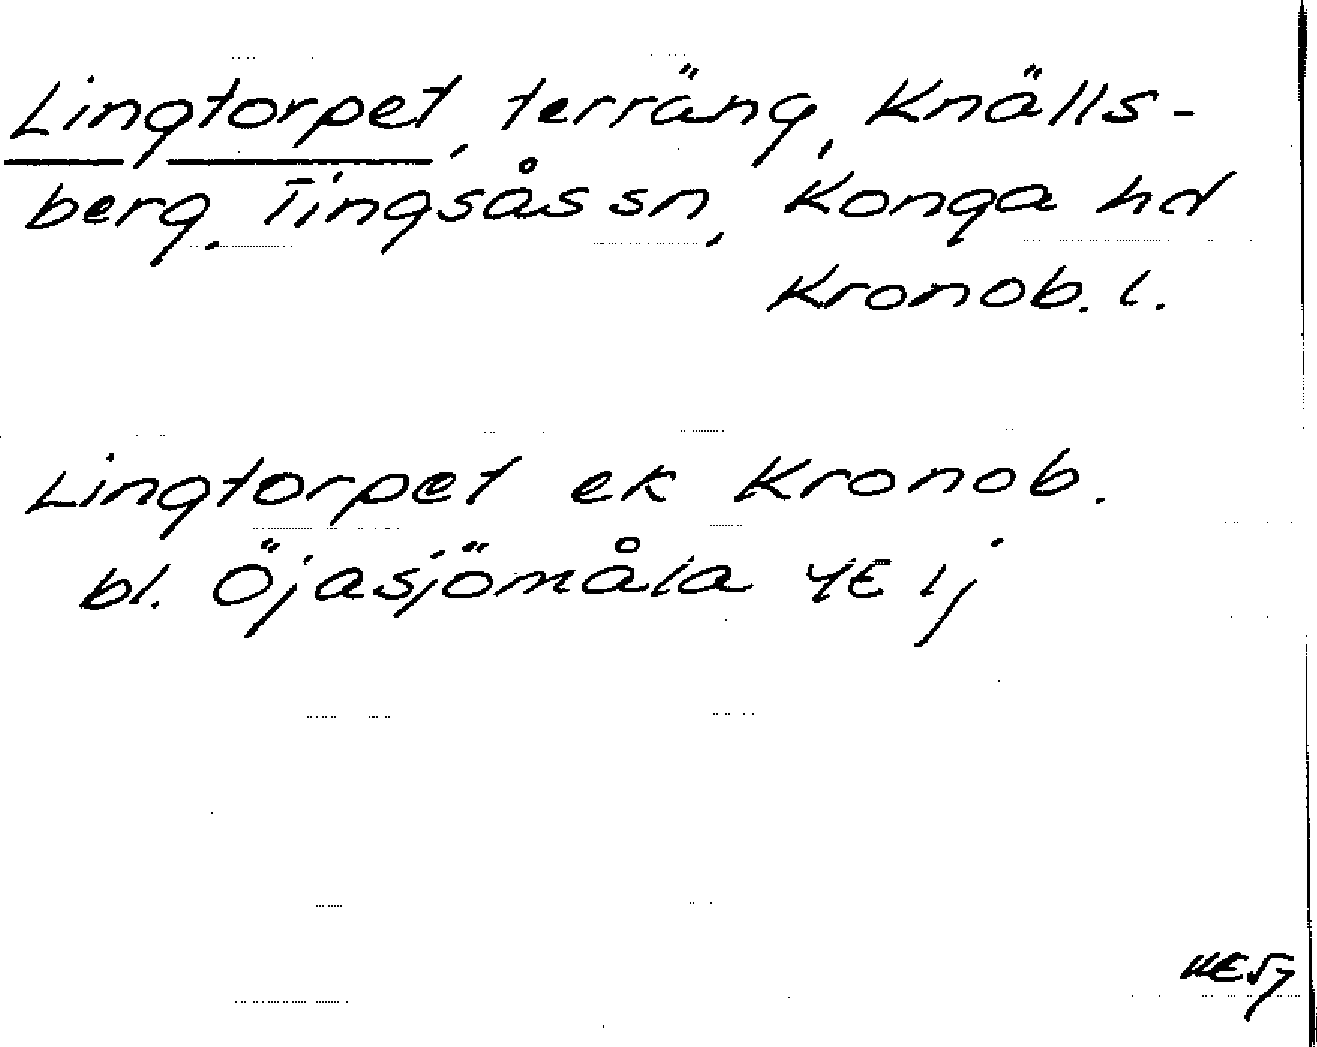 Lingtorpet, terräng, Knälls-
berg, Tingsås sn, Konga hd
Kronob. l.
Lingtorpet ek Kronob.
bl. Öjasjömåla 4E ij